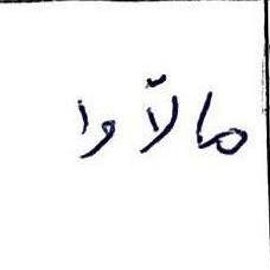 مالآوا